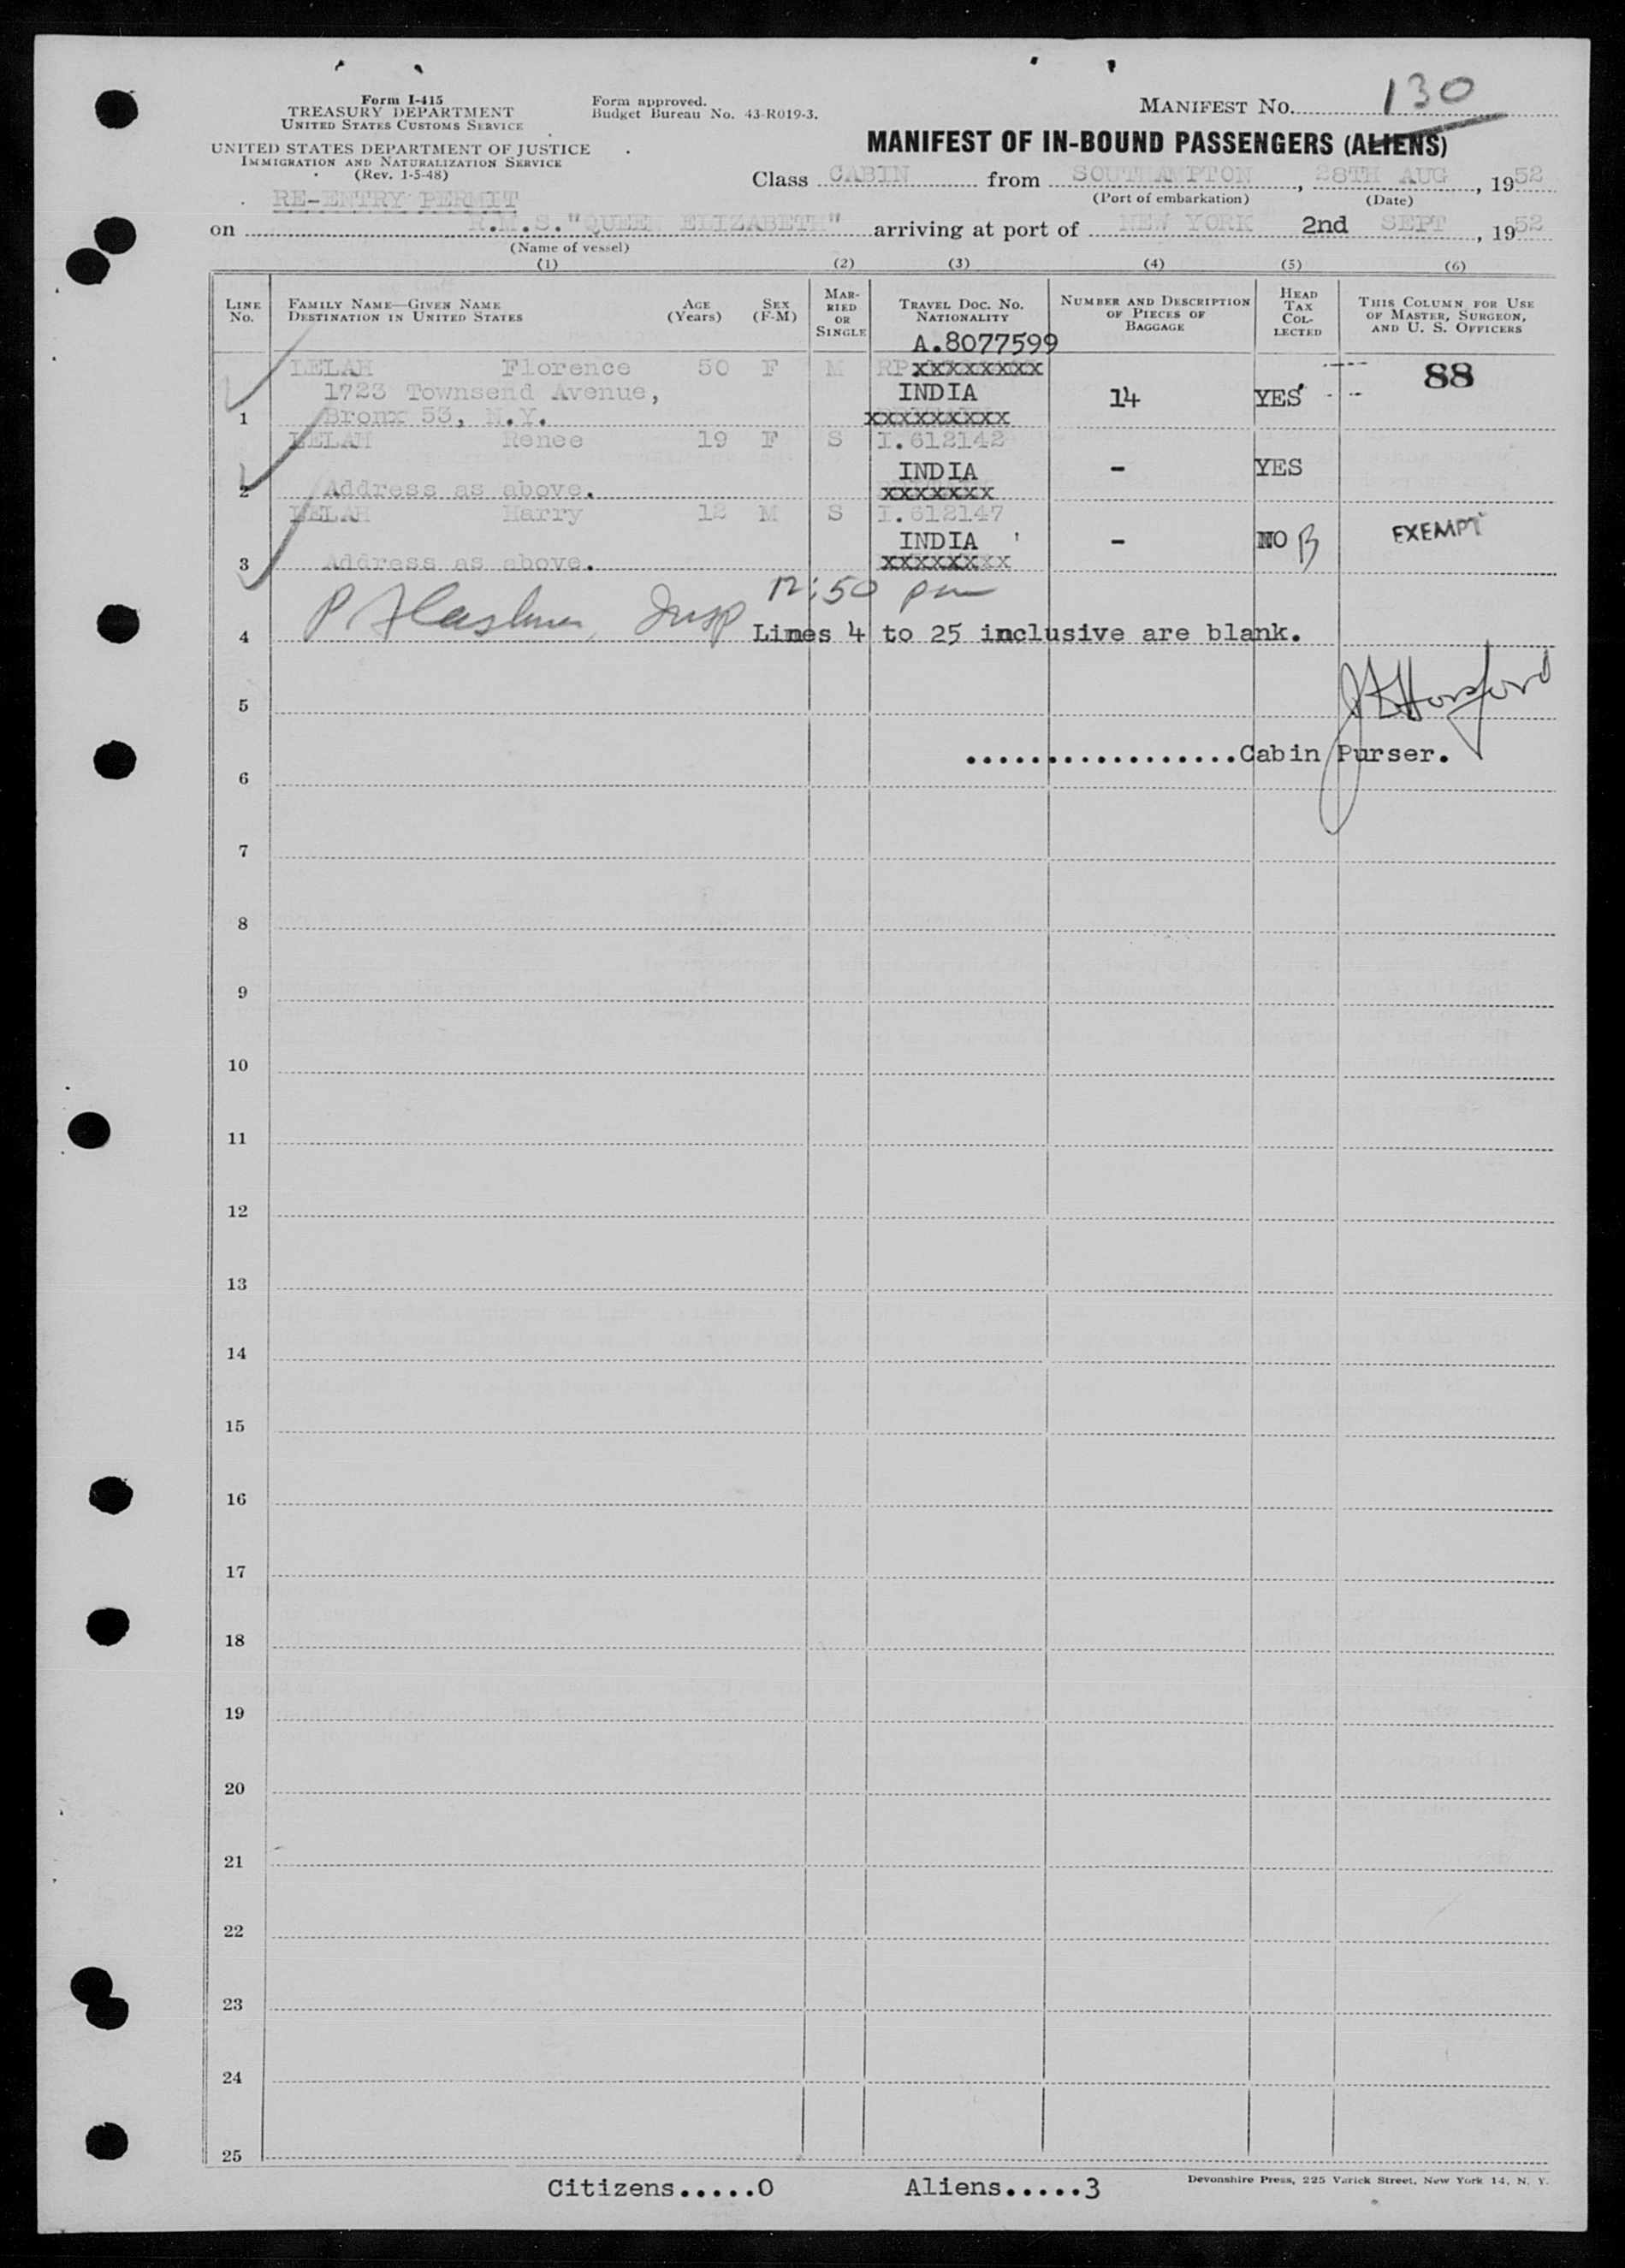 Form I-415
TREASURY DEPARTMENT
UNITED STATES CUSTOMS SERVICE
UNITED STATES DEPARTMENT OF JUSTICE
IMMIGRATION AND NATURALIZATION SERVICE
(Rev. 1-5-48)
Form approved.
Budget Bureau No. 43-R019-3.
MANIFEST NO. 130
MANIFEST OF IN-BOUND PASSENGERS (ALIENS)
Class CABIN from SOUTHAMPTON, 28TH AUG, 1952
(Port of embarkation) (Date)
RE-ENTRY PERMIT
on R.M.S. "QUEEN ELIZABETH" arriving at port of NEW YORK 2nd SEPT, 1952
(Name of vessel)
(1) (2) (3) (4) (5) (6)
LINE NO.
FAMILY NAME—GIVEN NAME
DESTINATION IN UNITED STATES
AGE (Years)
SEX (F-M)
MARRIED OR SINGLE
TRAVEL DOC. NO.
NATIONALITY
NUMBER AND DESCRIPTION OF PIECES OF BAGGAGE
HEAD TAX COLLECTED
THIS COLUMN FOR USE OF MASTER, SURGEON, AND U. S. OFFICERS
A.8077599
LELAH Florence 50 F M RP xxxxxxxx 88
1723 Townsend Avenue, INDIA 14 YES
1 Bronx 53, N.Y. xxxxxxxxx
LELAH Renee 19 F S I.612142
INDIA - YES
2 Address as above. xxxxxxx
LELAH Harry 12 M S I.612147
INDIA - NO EXEMPT
3 Address as above. xxxxxxxx
12:50 pm
Insp
4 Lines 4 to 25 inclusive are blank.
5
..................Cabin Purser.
6
7
8
9
10
11
12
13
14
15
16
17
18
19
20
21
22
23
24
25
Citizens.....0 Aliens.....3
Devonshire Press, 225 Varick Street, New York 14, N. Y.